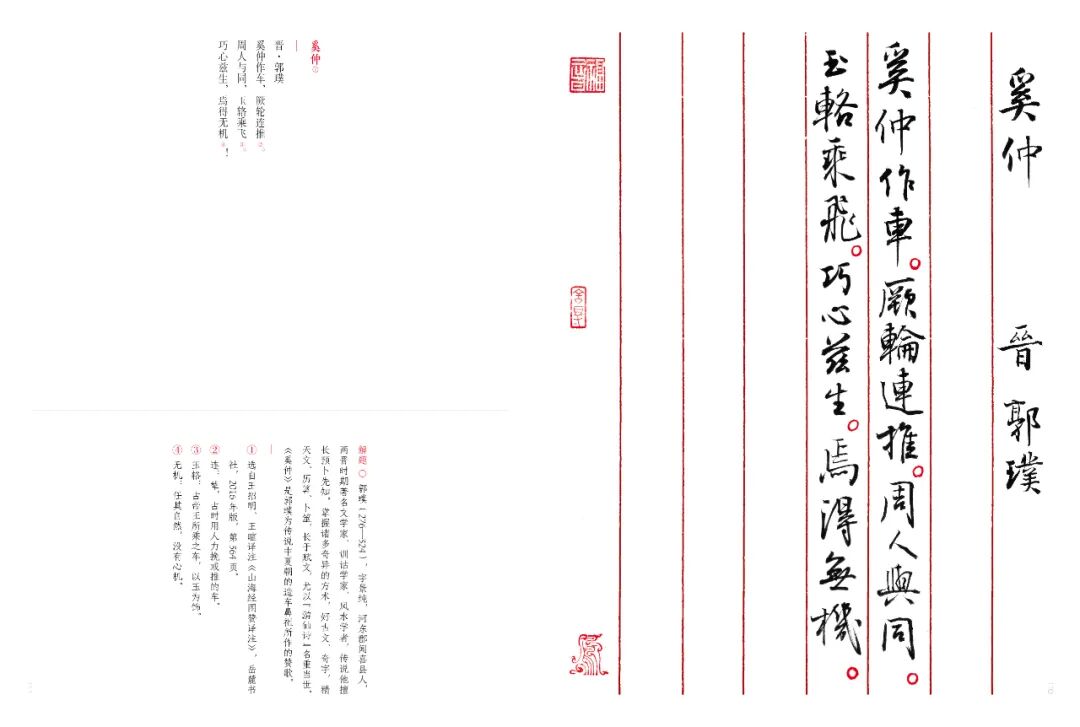 奚仲 晉 郭璞
奚仲作車。厥輪連推。周人與同。
玉輅乘飛。巧心茲生。焉得無機。
奚仲①
晋·郭璞
奚仲作车，厥轮连推②。
周人与同，玉辂乘飞③。
巧心兹生，焉得无机④！
解题 郭璞（276—324），字景纯，河东郡闻喜县人，
两晋时期著名文学家、训诂学家、风水学者，传说他擅
长预卜先知，掌握诸多奇异的方术，好古文、奇字，精
天文、历算、卜筮，长于赋文，尤以“游仙诗”名重当世。
《奚仲》是郭璞为传说中夏朝的造车鼻祖所作的赞歌。
① 选自王招明、王暄译注《山海经图赞译注》，岳麓书
社，2016年版，第364页。
② 连：辇，古时用人力挽或推的车。
③ 玉辂：古帝王所乘之车，以玉为饰。
④ 无机：任其自然，没有心机。